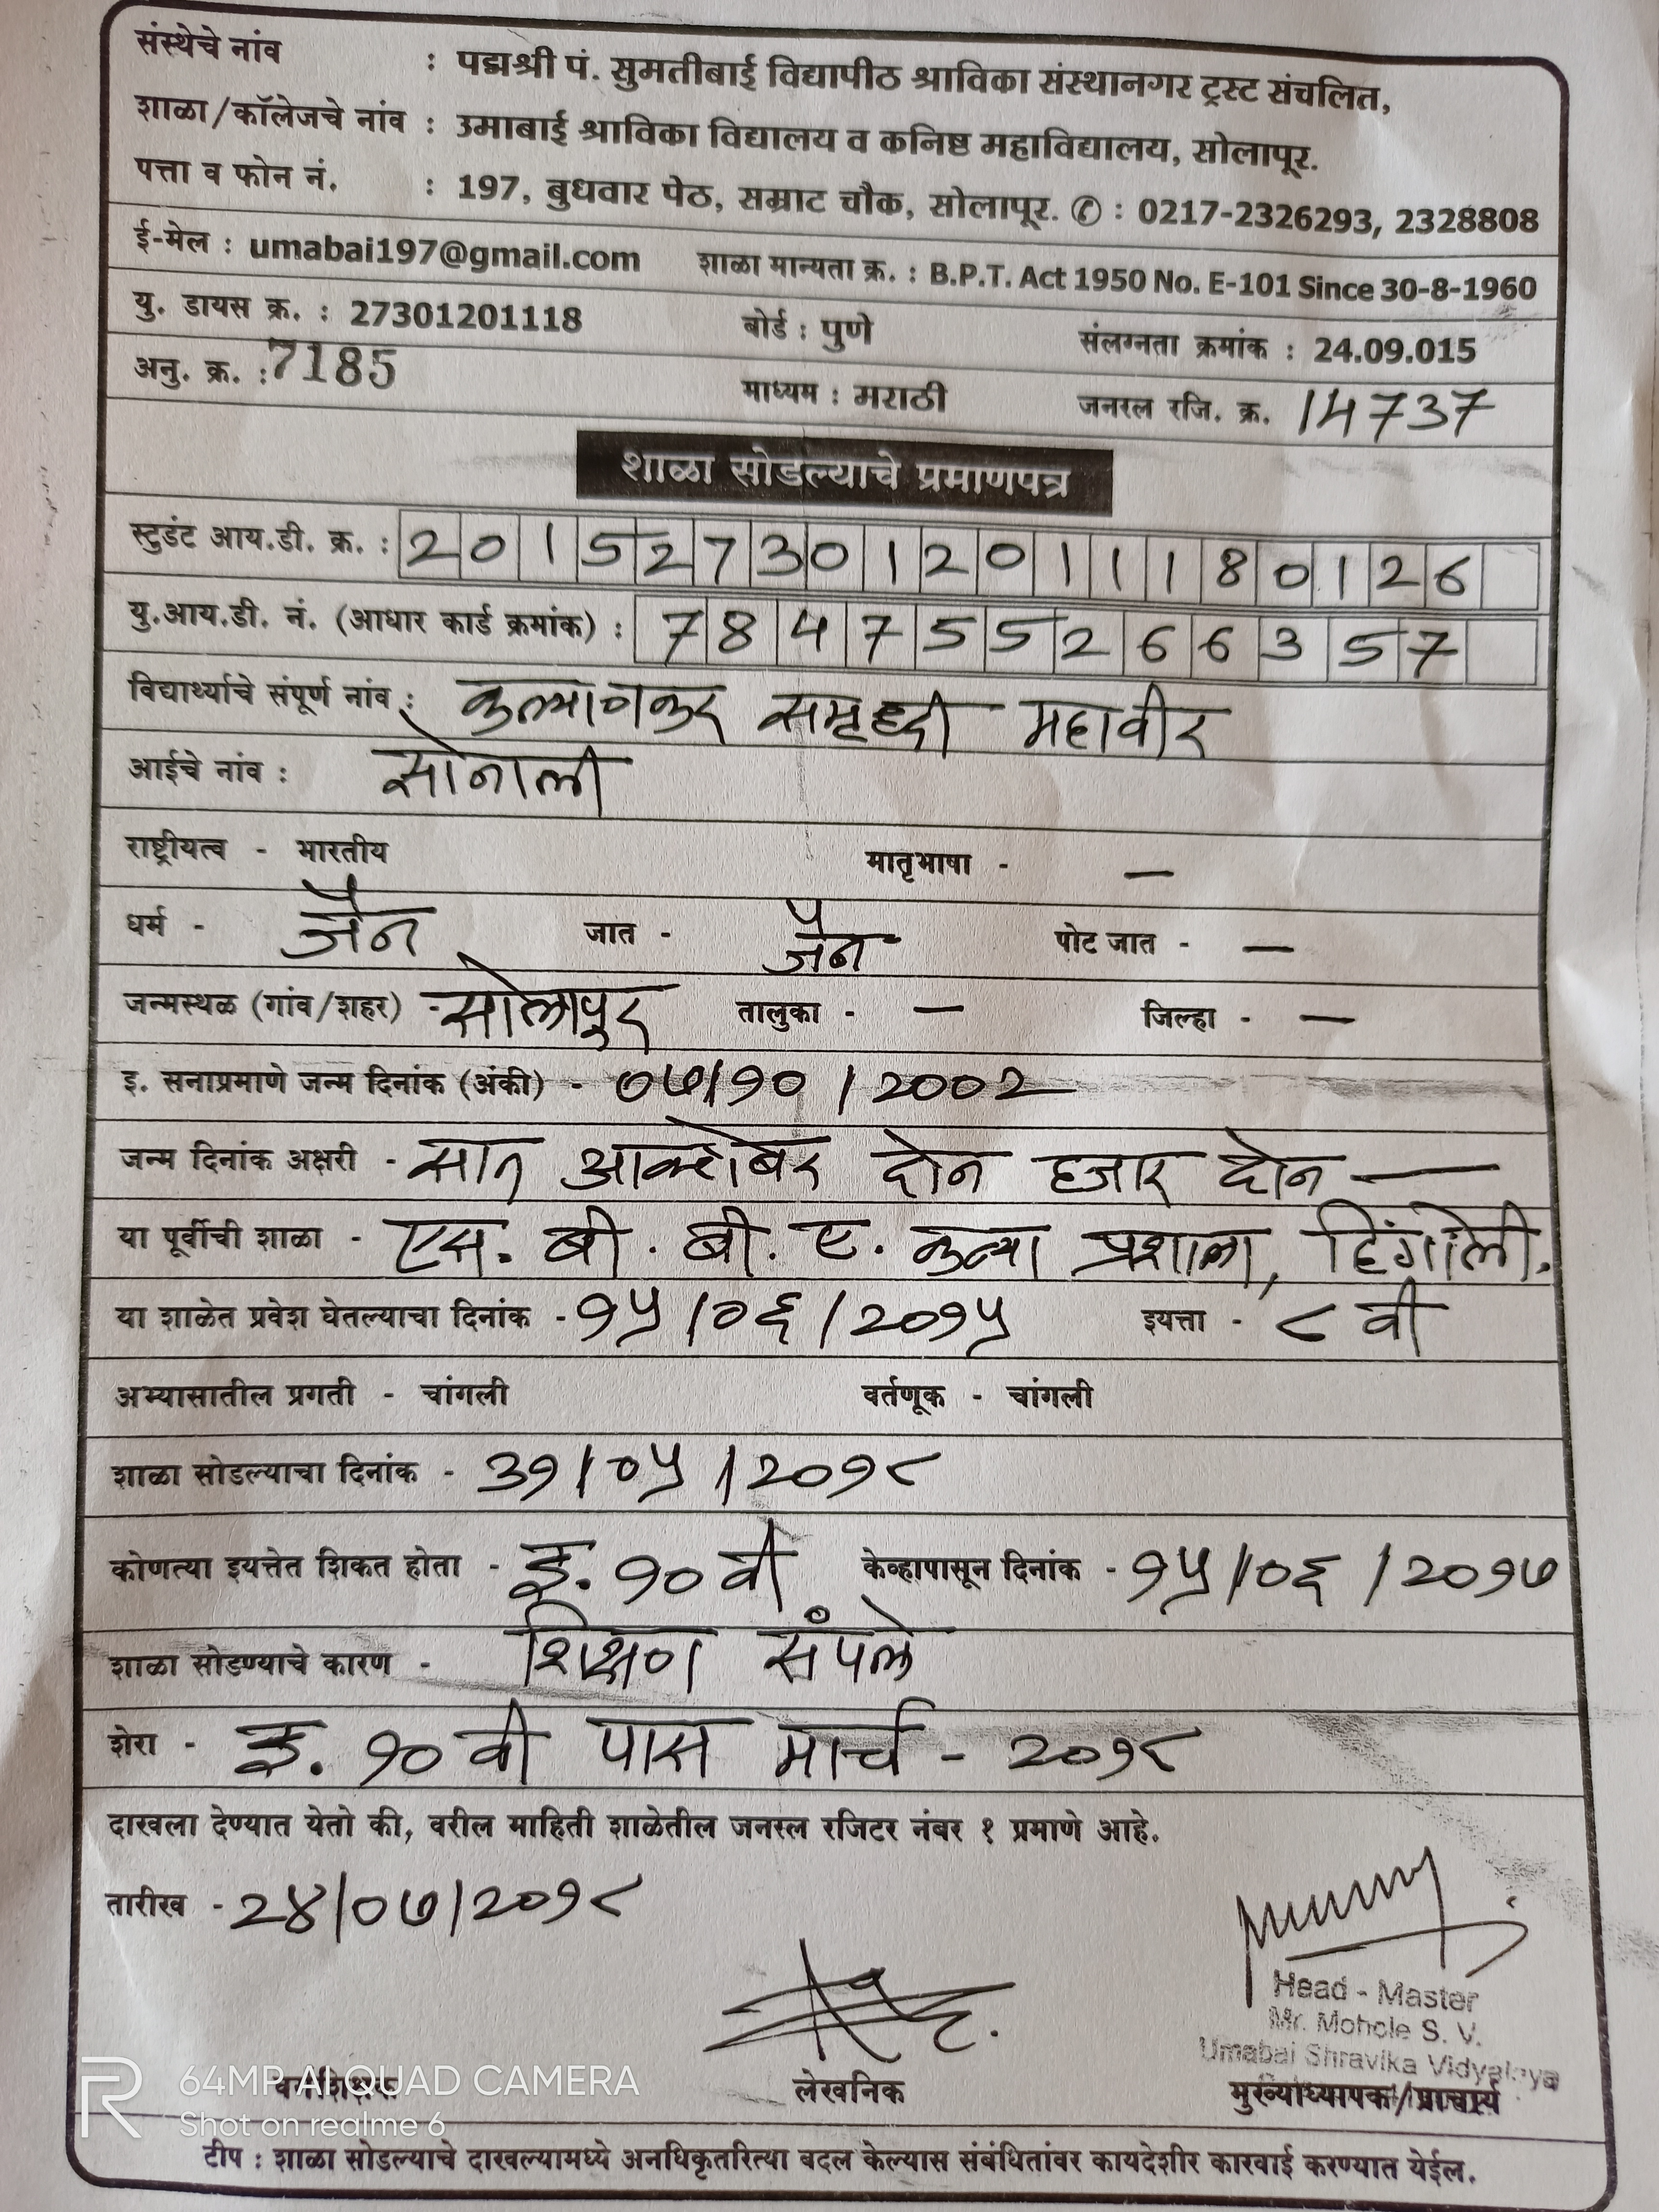 संस्थेचे नांव : पद्मश्री पं. सुमतीबाई विद्यापीठ श्राविका संस्थानगर ट्रस्ट संचलित,
शाळा/कॉलेजचे नांव : उमाबाई श्राविका विद्यालय व कनिष्ठ महाविद्यालय, सोलापूर.
पत्ता व फोन नं. : 197, बुधवार पेठ, सम्राट चौक, सोलापूर. ✆ : 0217-2326293, 2328808
ई-मेल : umabai197@gmail.com शाळा मान्यता क्र. : B.P.T. Act 1950 No. E-101 Since 30-8-1960
यु. डायस क्र. : 27301201118 बोर्ड : पुणे संलग्नता क्रमांक : 24.09.015
अनु. क्र. : 7185 माध्यम : मराठी जनरल रजि. क्र. 14737
शाळा सोडल्याचे प्रमाणपत्र
स्टुडंट आय.डी. क्र. : 2015273012011180126
यु.आय.डी. नं. (आधार कार्ड क्रमांक) : 784755266357
विद्यार्थ्याचे संपूर्ण नांव : कल्याणकर समृद्धी महावीर
आईचे नांव : सोनाली
राष्ट्रीयत्व - भारतीय मातृभाषा - —
धर्म - जैन जात - जैन पोट जात - —
जन्मस्थळ (गांव/शहर) - सोलापुर तालुका - — जिल्हा - —
इ. सनाप्रमाणे जन्म दिनांक (अंकी) - ०७/१०/२००२
जन्म दिनांक अक्षरी - सात आक्टोबर दोन हजार दोन —
या पूर्वीची शाळा - एस. बी. बी. ए. कन्या प्रशाला, हिंगोली.
या शाळेत प्रवेश घेतल्याचा दिनांक - १५/०६/२०१५ इयत्ता - ८ वी
अभ्यासातील प्रगती - चांगली वर्तणूक - चांगली
शाळा सोडल्याचा दिनांक - ३१/०५/२०१८
कोणत्या इयत्तेत शिकत होता - इ. १० वी केव्हापासून दिनांक - १५/०६/२०१७
शाळा सोडण्याचे कारण - शिक्षण संपले
शेरा - इ. १० वी पास मार्च - २०१८
दाखला देण्यात येतो की, वरील माहिती शाळेतील जनरल रजिटर नंबर १ प्रमाणे आहे.
तारीख - २४/०७/२०१८
Head - Master
Mr. Mohole S. V.
Umabai Shravika Vidyalaya
वर्गशिक्षक लेखनिक मुख्याध्यापक/प्राचार्य
64MP AI QUAD CAMERA
Shot on realme 6
टीप : शाळा सोडल्याचे दाखल्यामध्ये अनधिकृतरित्या बदल केल्यास संबंधितांवर कायदेशीर कारवाई करण्यात येईल.